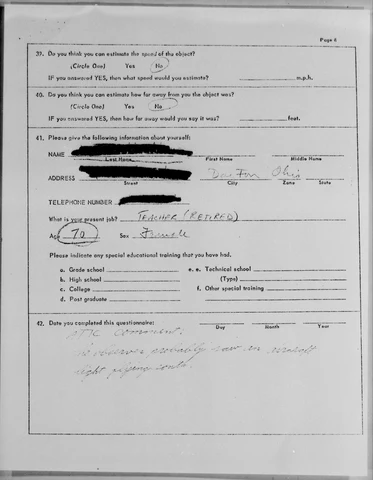 Page 8
39. Do you think you can estimate the speed of the object?
(Circle One) Yes No
IF you answered YES, then what speed would you estimate? m.p.h.
40. Do you think you can estimate how far away from you the object was?
(Circle One) Yes No
IF you answered YES, then how far away would you say it was? feet.
41. Please give the following information about yourself:
NAME
Last Name First Name Middle Name
ADDRESS Dayton Ohio
Street City Zone State
TELEPHONE NUMBER
What is your present job? TEACHER (RETIRED)
Age 70 Sex Female
Please indicate any special educational training that you have had.
a. Grade school e. Technical school
b. High school (Type)
c. College f. Other special training
d. Post graduate
42. Date you completed this questionnaire:
Day Month Year
ATIC Comment:
observer probably saw an aircraft
light flying south.